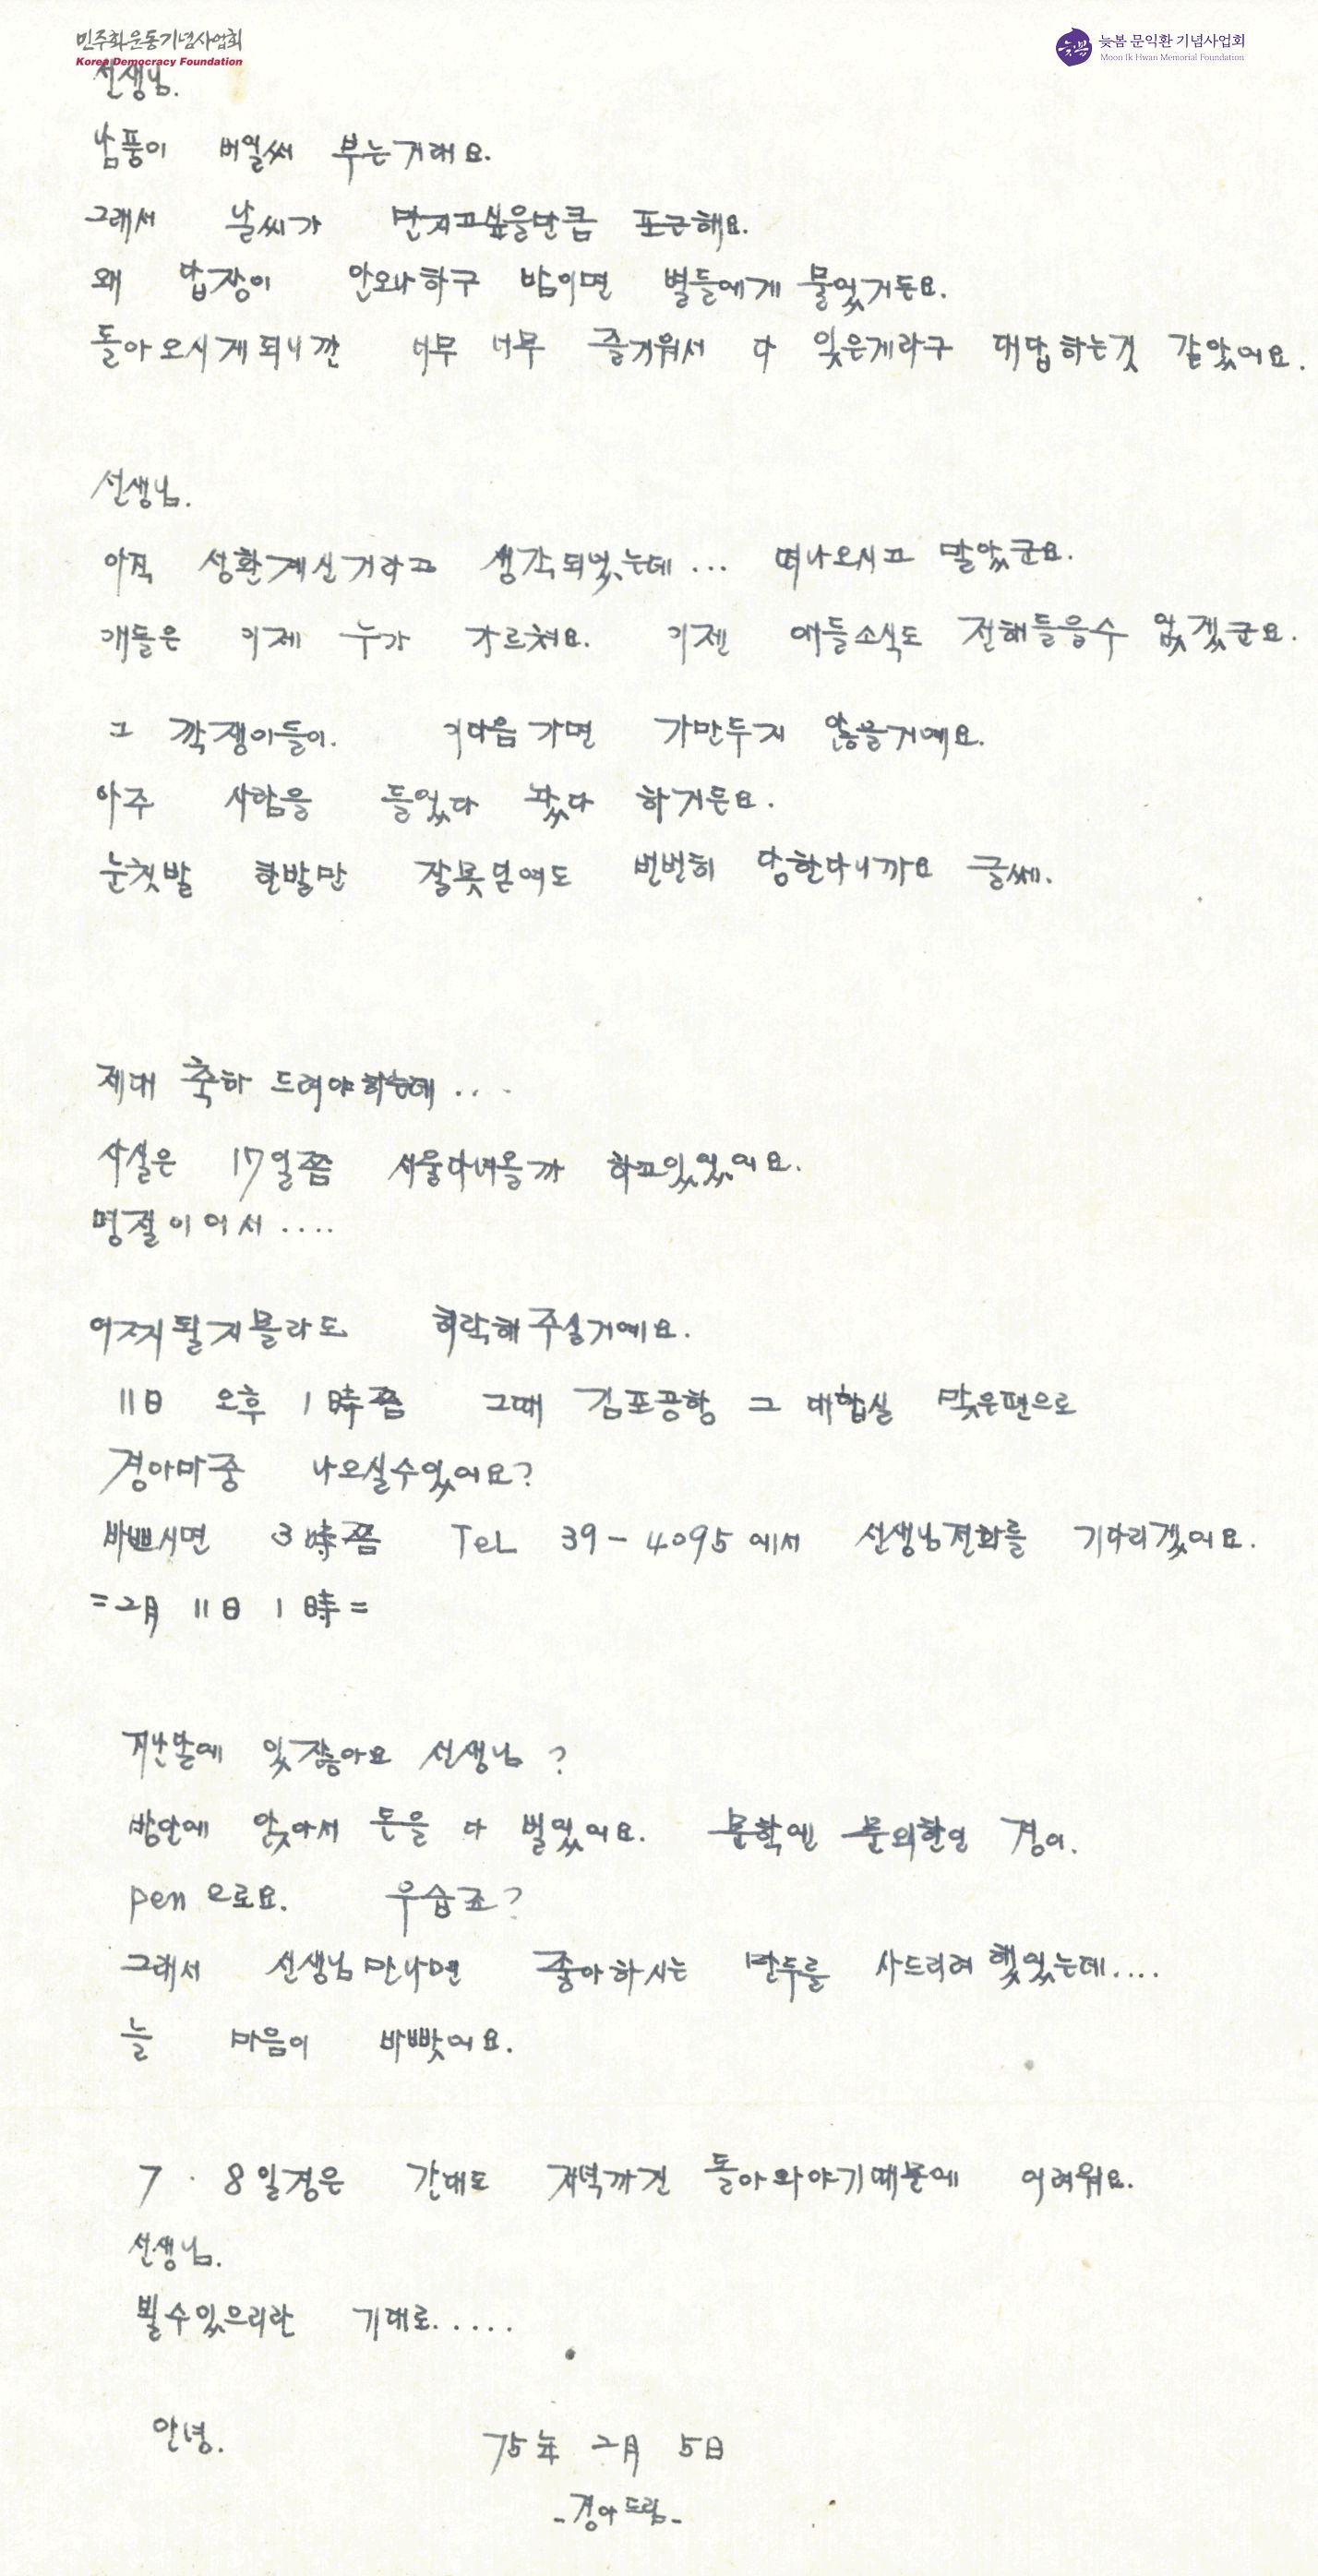 민주화운동기념사업회
Korea Democracy Foundation
늦봄 문익환 기념사업회
Moon Ik Hwan Memorial Foundation
늦봄
선생님.
남풍이 버얼써 부는거래요.
그래서 날씨가 만지고싶을만큼 포근해요.
왜 답장이 안오나하구 밤이면 별들에게 물었거든요.
돌아오시게되니깐 너무 너무 즐거워서 다 잊은게라구 대답하는것 같았어요.
선생님.
아직 성환계신거라고 생각되었는데... 떠나오시고 말았군요.
걔들은 이제 누가 가르쳐요. 이젠 애들소식도 전해들을수 없겠군요.
그 깍쟁이들이. 이다음 가면 가만두지 않을거예요.
아주 사람을 들었다 놨다 하거든요.
눈칫발 한발만 잘못딛여도 번번히 당한다니까요 글쎄.
제대 축하 드려야하는데....
사실은 17일쯤 서울다녀올까 하고있었어요.
명절이어서....
어찌될지몰라도 허락해주실거예요.
11日 오후 1時쯤 그때 김포공항 그 대합실 맞은편으로
경아마중 나오실수있어요?
바쁘시면 3時쯤 TeL 39-4095에서 선생님전화를 기다리겠어요.
=2月 11日 1時=
지난달에 있잖아요 선생님?
방안에 앉아서 돈을 다 벌었어요. 문학엔 문외한인 경아.
pen으로요. 우습죠?
그래서 선생님만나면 좋아하시는 만두를 사드리려했었는데....
늘 마음이 바빴어요.
7·8일경은 간대도 저녁까진 돌아와야기때문에 어려워요.
선생님.
뵐수있으리란 기대로.....
안녕. 75年 2月 5日
-경아드림-